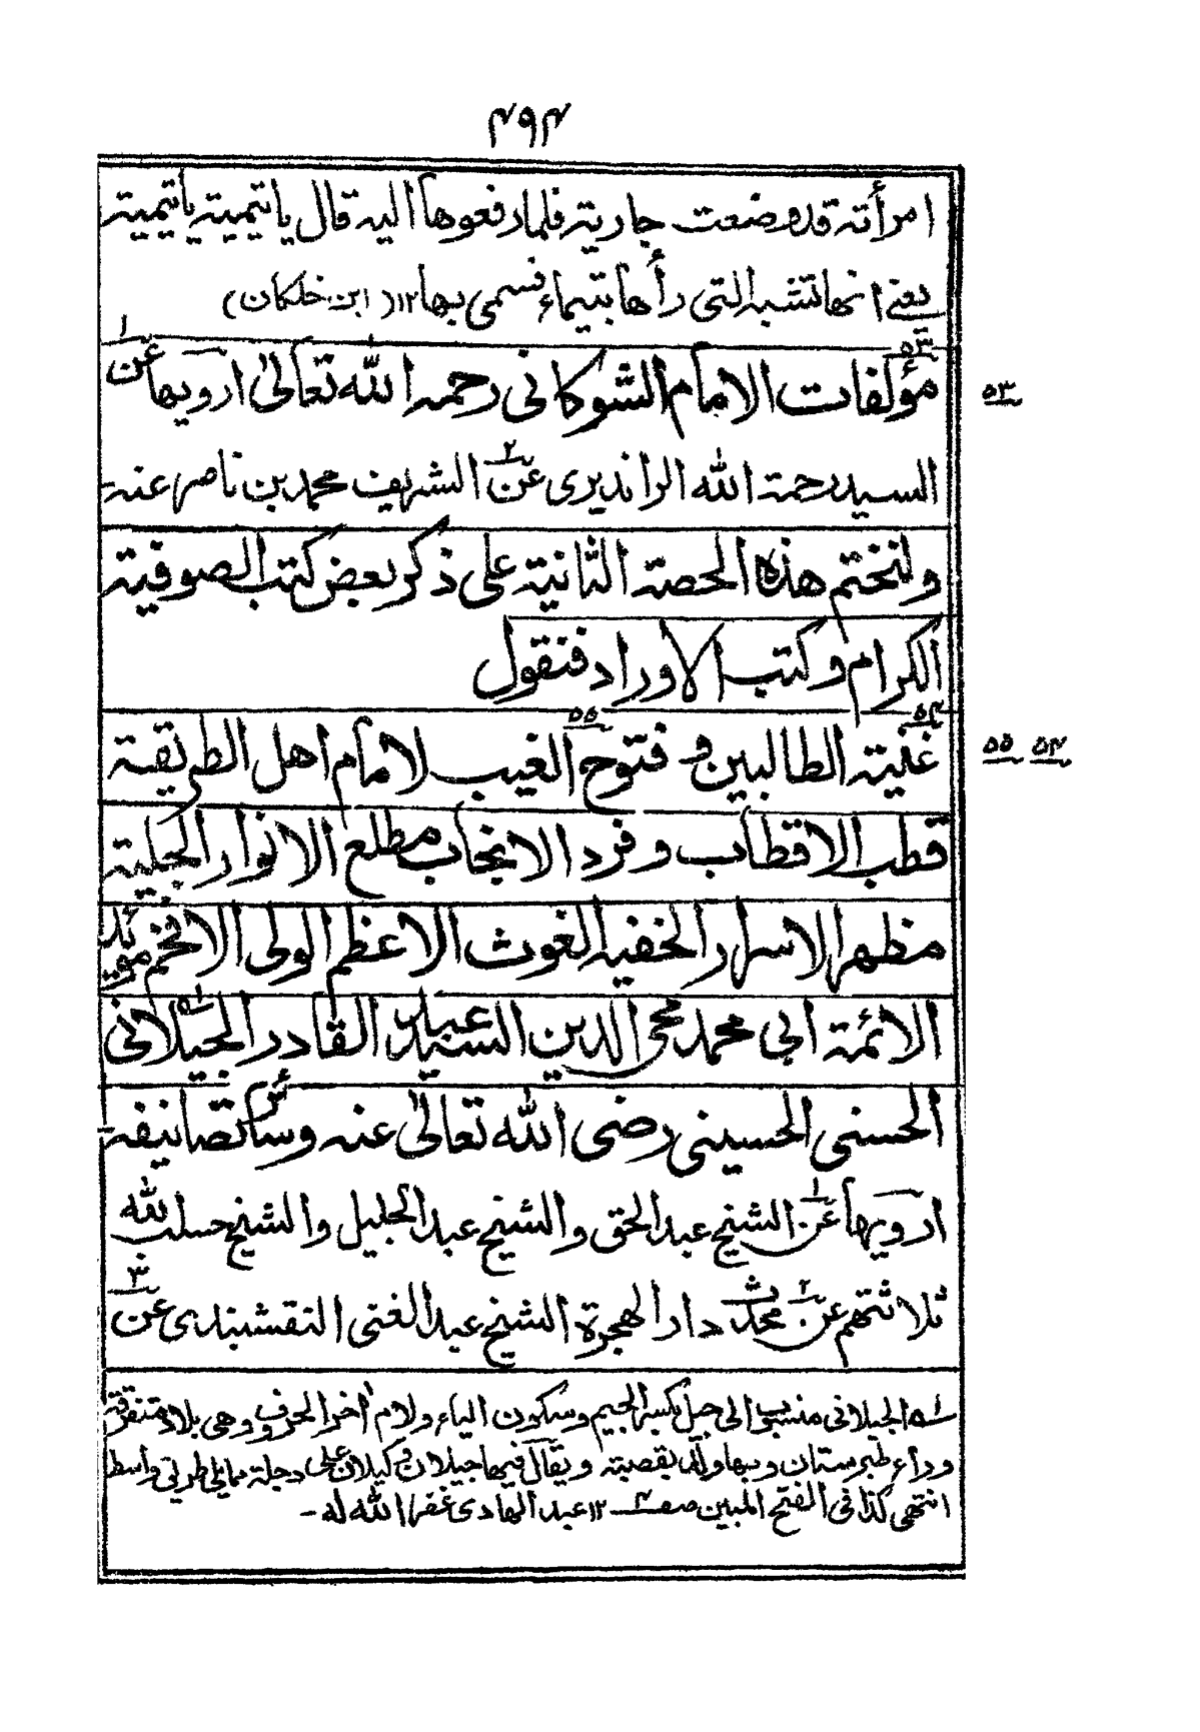 ٤٩٤
امرأته قد وضعت جارية فلما رفعوها اليه قال يا تيمية يا تيمية
يعنے انها تشبه التى رأها بتيماء فسمى بها ١٢ (ابن خلكان)
٥٣
مؤلفات الامام الشوكانى رحمه الله تعالىٰ ارويها عن ١
السيد رحمة الله الراندیری عن ٢ الشريف محمد بن ناصر عنه
ولنختم هذه الحصة الثانية على ذكر بعض كتب الصوفية
الكرام وكتب الاوراد فنقول
٥٤ ٥٥
غنية الطالبين و فتوح الغيب لامام اهل الطريقة
قطب الاقطاب وفرد الانجاب مطلع الانوار الجلية
مظهر الاسرار الخفية الغوث الاعظم الولى الافخم مويد
الائمة ابى محمد محى الدين السيد عبد القادر الجيلانى
الحسنى الحسينى رضى الله تعالىٰ عنه وسائر تصانيفه
ارويها عن ١ الشيخ عبد الحق والشيخ عبد الجليل والشيخ حسب الله
ثلاثتهم عن ٢ محدث دار الهجرة الشيخ عبد الغنى النقشبندى عن ٣
له الجيلانى منسوب الى جيل بكسر الجيم وسكون الياء ولام آخر الحروف وهى بلاد متفرقة
وراء طبرستان وبها ولد بقصبته ويقال فيها جيلان و كيلان على دجلة مما يلى طريق واسط
انتهى كذا فى الفتح المبين صفـ ١٢ عبد الهادى غفر الله له -